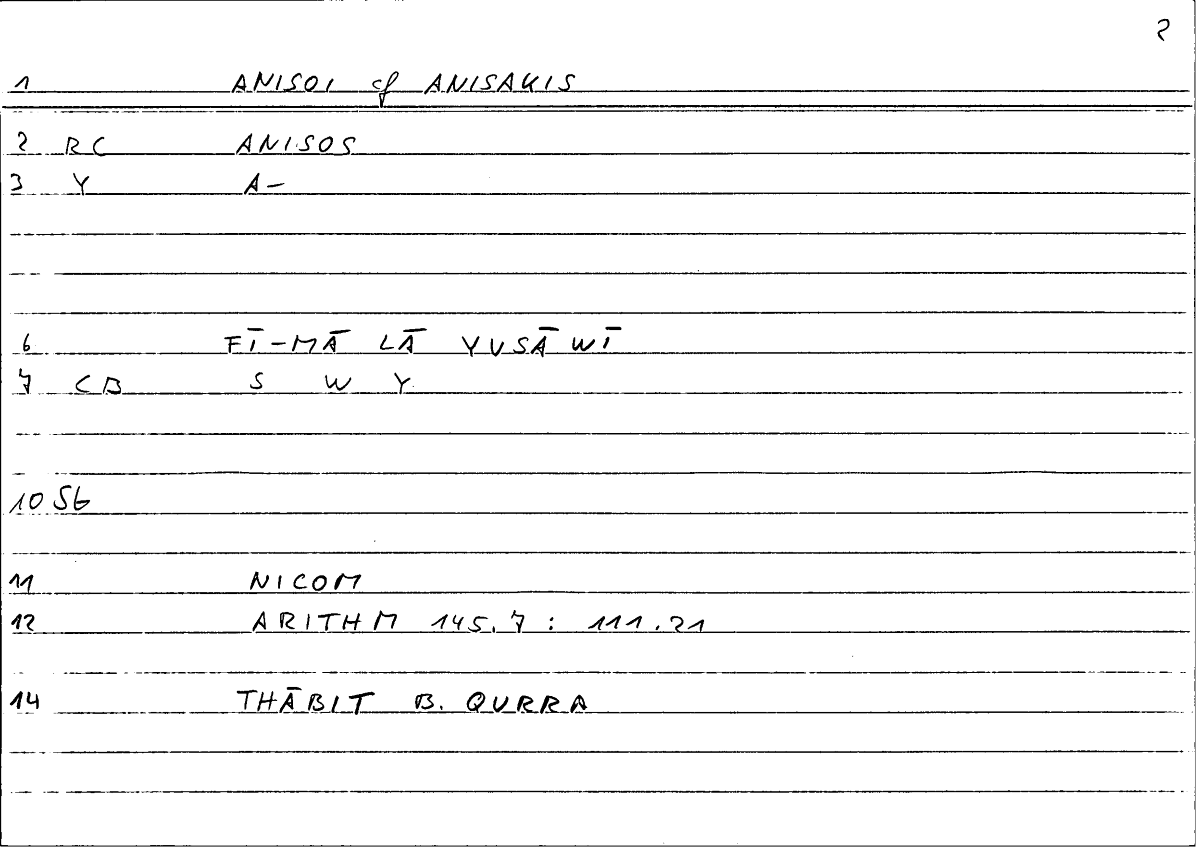 2
1 ANISOI cf ANISAKIS
2 RC ANISOS
3 Y A-
6 FĪ-MĀ LĀ YUSĀWĪ
7 CB S W Y
10 Sb
11 NICOM
12 ARITHM 145.7 : 111.21
14 THĀBIT B. QURRA